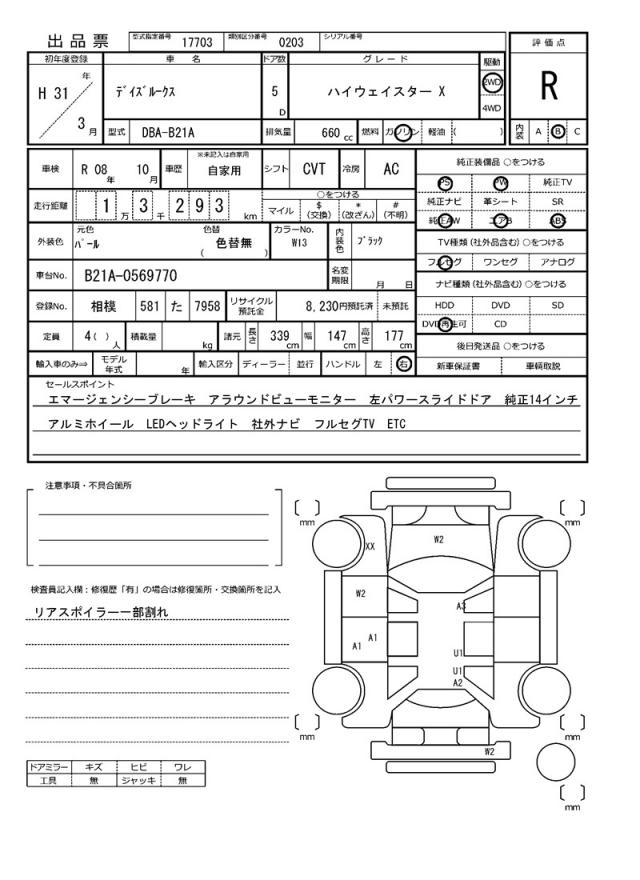 出品票
型式指定番号 17703 類別区分番号 0203 シリアル番号
評価点
R
内装 A B C
初年度登録 車名 ドア数 グレード 駆動
H 31 年 3 月
ﾃﾞｲｽﾞﾙｰｸｽ 5 D ハイウェイスター X 2WD 4WD
型式 DBA-B21A 排気量 660 cc 燃料 ガソリン 軽油 ( )
車検 R 08 年 10 月 車歴 ※未記入は自家用 自家用 シフト CVT 冷房 AC
走行距離 1 万 3 千 2 9 3 km
○をつける
マイル $ (交換) * (改ざん) # (不明)
外装色 元色 ﾊﾟｰﾙ 色替 ( 色替無 ) カラーNo. W13 内装色 ﾌﾞﾗｯｸ
車台No. B21A-0569770 名変期限 月 日
登録No. 相模 581 た 7958 リサイクル預託金 8,230円預託済 未預託
定員 4 ( ) 人 積載量 kg 諸元 長さ 339 cm 幅 147 cm 高さ 177 cm
輸入車のみ⇒ モデル年式 年 輸入区分 ディーラー 並行 ハンドル 左 右
純正装備品 ○をつける
PS PW 純正TV
純正ナビ 革シート SR
純正AW エアB ABS
TV種類 (社外品含む) ○をつける
フルセグ ワンセグ アナログ
ナビ種類 (社外品含む) ○をつける
HDD DVD SD
DVD再生可 CD
後日発送品 ○をつける
新車保証書 車輌取説
セールスポイント
エマージェンシーブレーキ アラウンドビューモニター 左パワースライドドア 純正14インチ
アルミホイール LEDヘッドライト 社外ナビ フルセグTV ETC
注意事項・不具合箇所
検査員記入欄：修復歴「有」の場合は修復箇所・交換箇所を記入
リアスポイラー一部割れ
ドアミラー キズ ヒビ ワレ
工具 無 ジャッキ 無
mm
mm
XX
W2
W2
A3
A1
A1
U1
U1
A2
mm
mm
W2
mm